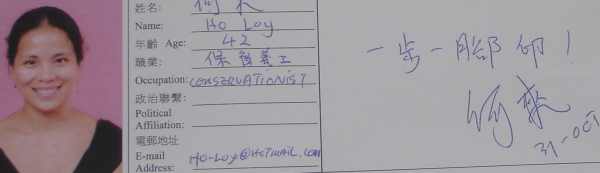 姓名: 何來
Name: Ho Loy
年齡 Age: 42
職業: 保育義工
Occupation: CONSERVATIONIST
政治聯繫:
Political
Affiliation:
電郵地址
E-mail Ho-Loy@HoTMAIL.COM
Address:
一步一腳印!
何來
31-OCT